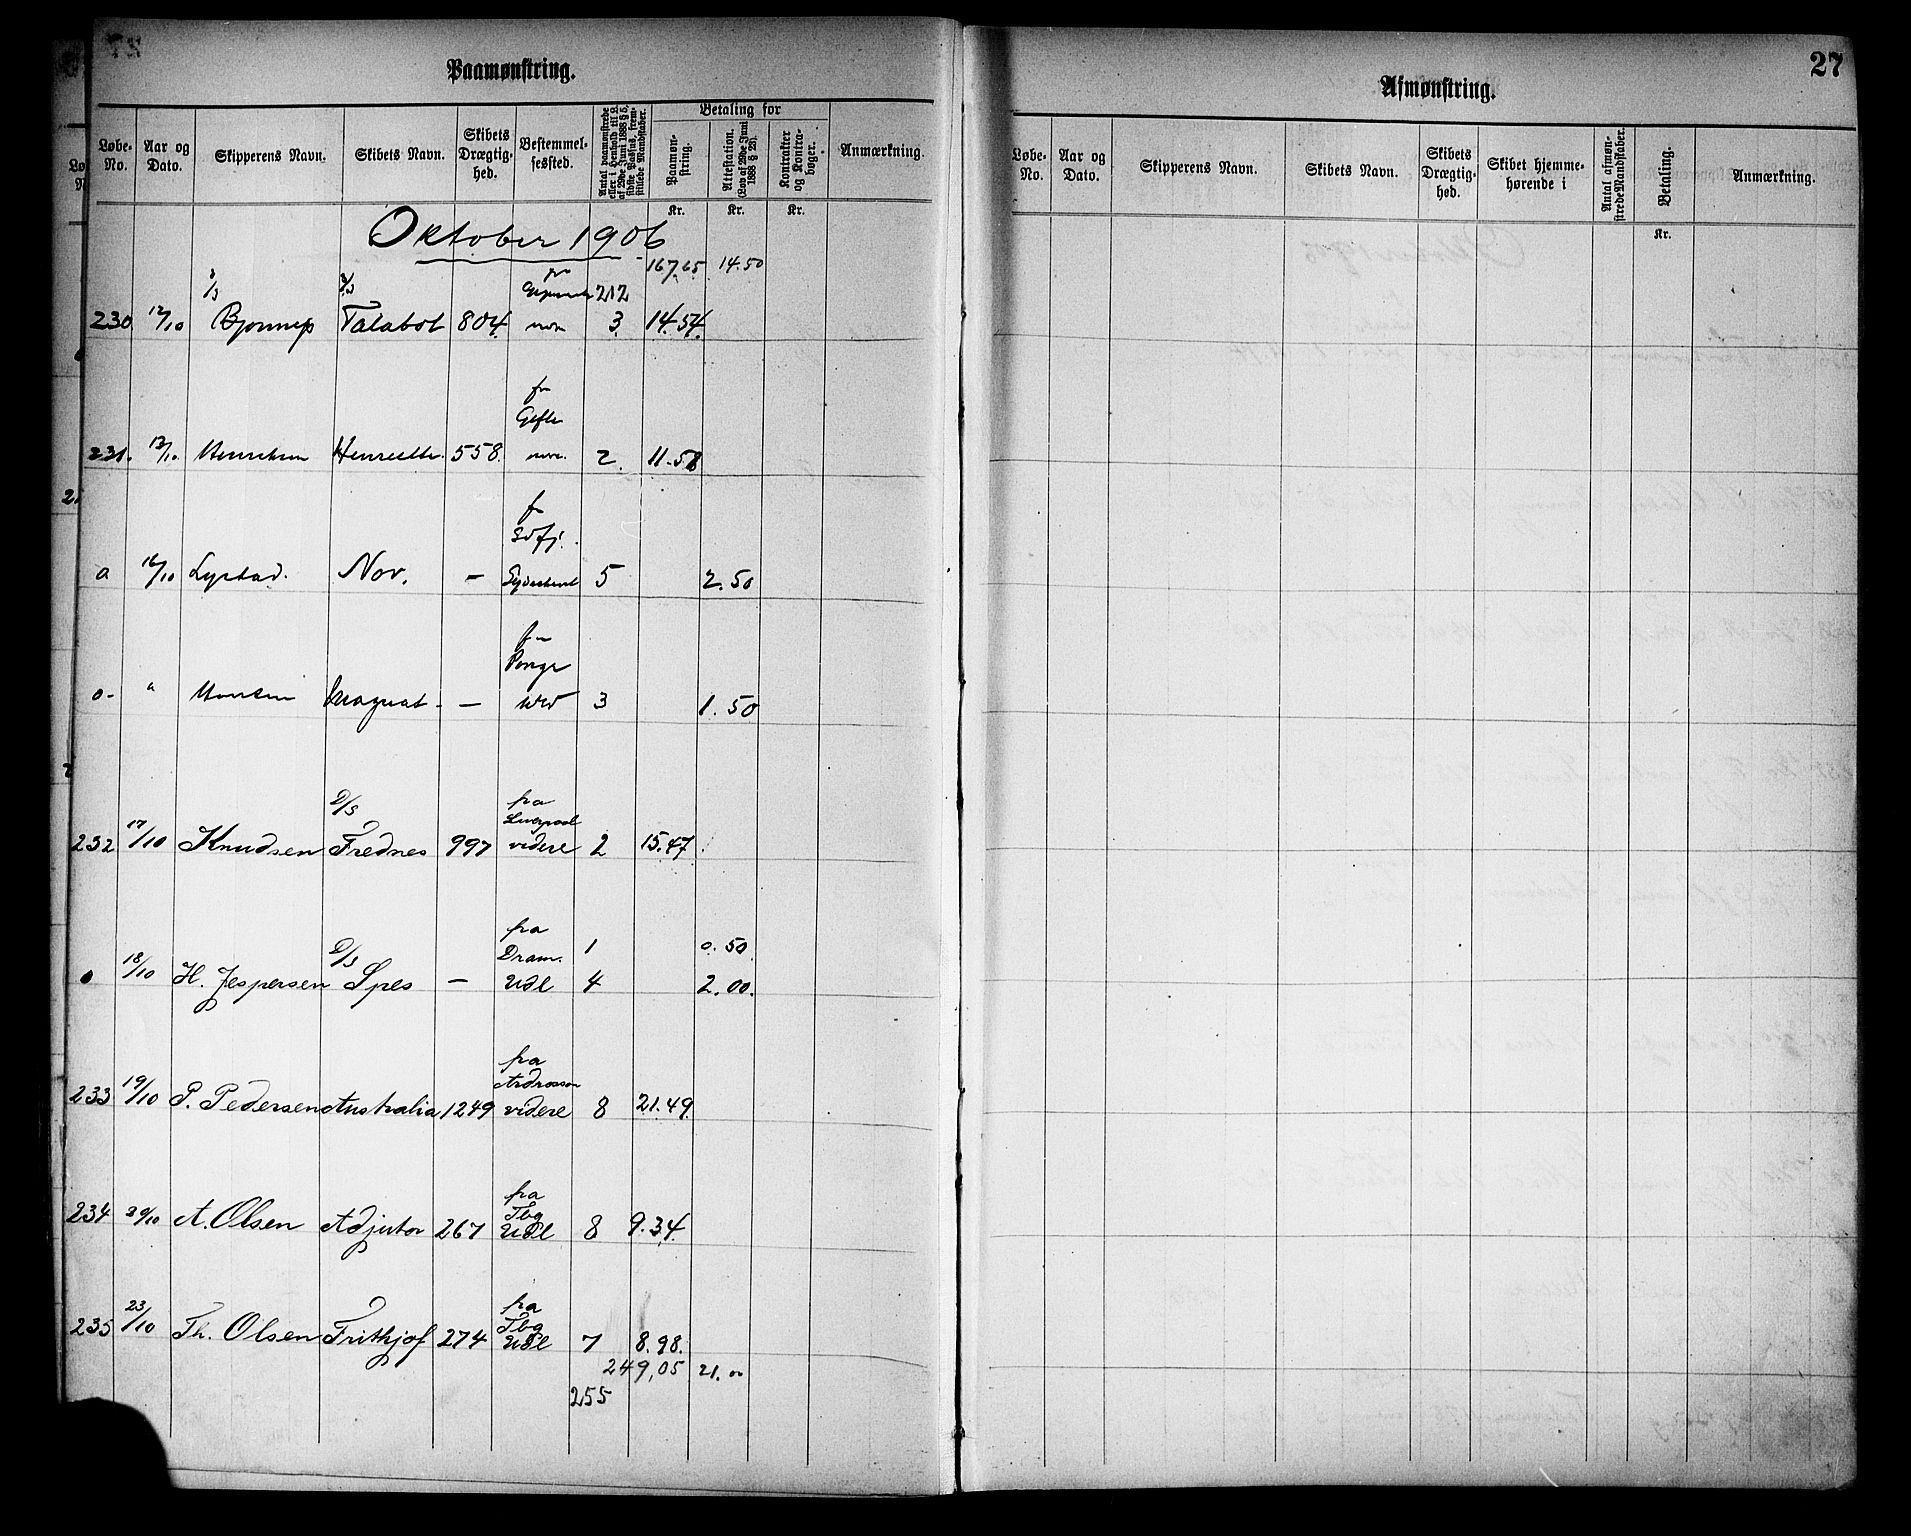 27
Paamønstring.
Løbe-No. Aar og Dato. Skipperens Navn. Skibets Navn. Skibets Drægtighed. Bestemmelsessted. Antal paamønstrede eller i Henhold til L. af 29de Juni 1888 § 5, sidste Passus, fremstillede Mandskaber. Betaling for Paamønstring. Attestation. (Lov af 29de Juni 1888 § 25). Kontrakter og Kontrabøger. Anmærkning.
Kr. Kr. Kr.
Oktober 1906
167.65 14.50
212
230 12/10 Bjønnes Talabot 804 3 14.54.
fr
Gefle
231. 13/10. Henriksen Henriette. 558. 2. 11.58
fr
a 16/10 Lystad. Nov. - 5 2.50
fra
o- " Hansen Magnat - - 3 1.50
D/S fra
Liverpool
232 17/10 Knudsen Frednes 997 videre 2 15.47.
D/S fra
Dram. 1 0.50
18/10 H. Jespersen Spes - Udl 4 2.00.
fra
Ardrossan
233 19/10 P. Pedersen Australia 1249 videre 8 21.49.
fra
Tbg
234 20/10 A. Olsen Adjutor 267 Udl 8 9.34.
fra
Tbg
235 23/10 Th. Olsen Frithjof 274 Udl 7 8.98.
249,05 21.00
255
Afmønstring.
Løbe-No. Aar og Dato. Skipperens Navn. Skibets Navn. Skibets Drægtighed. Skibet hjemmehørende i Antal afmønstrede Mandskaber. Betaling. Anmærkning.
Kr.